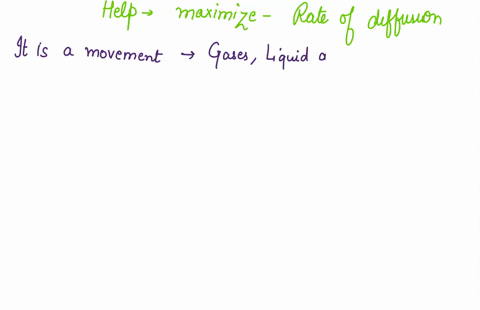 Help → maximize - Rate of diffusion
It is a movement → Gases, Liquid a